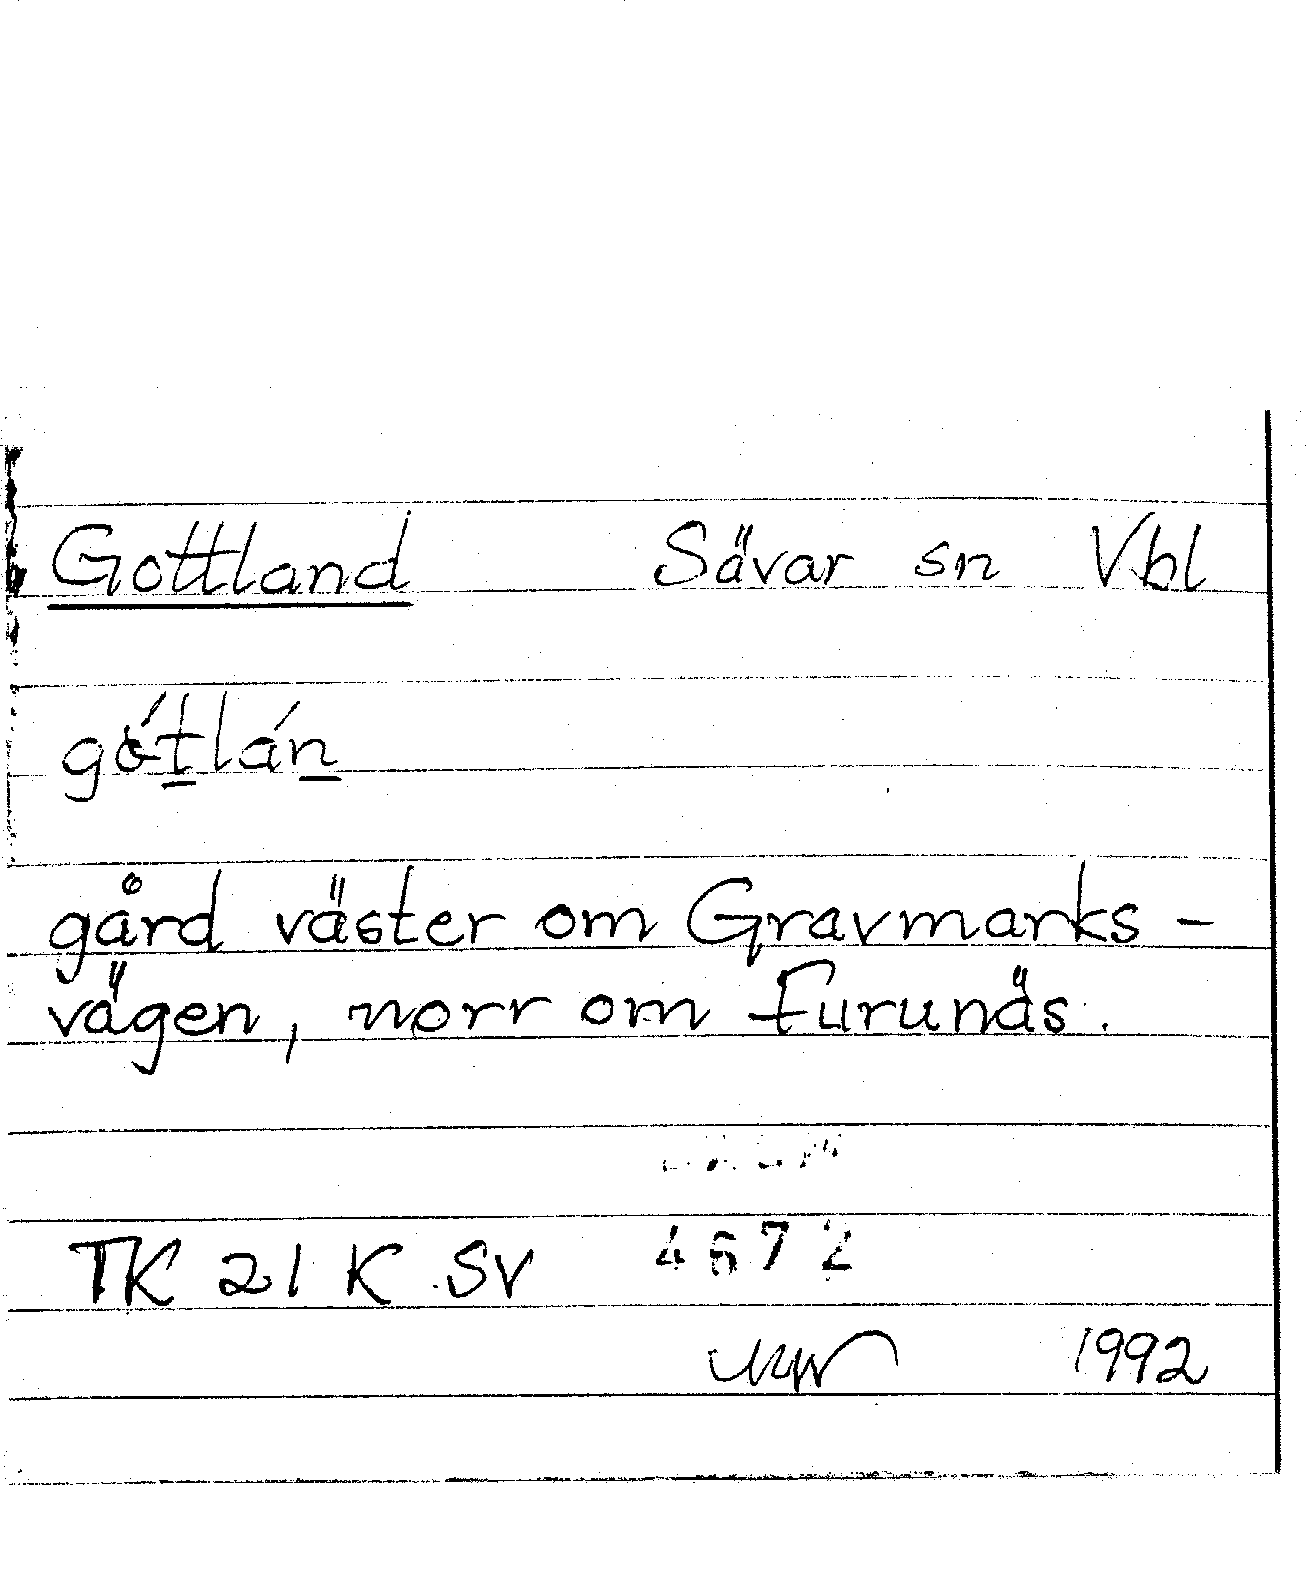 Gottland Sävar sn Vbl
gót̲lán̲
gård väster om Gravmarks-
vägen, norr om Furunäs.
TK 21 K SV 4672
1992